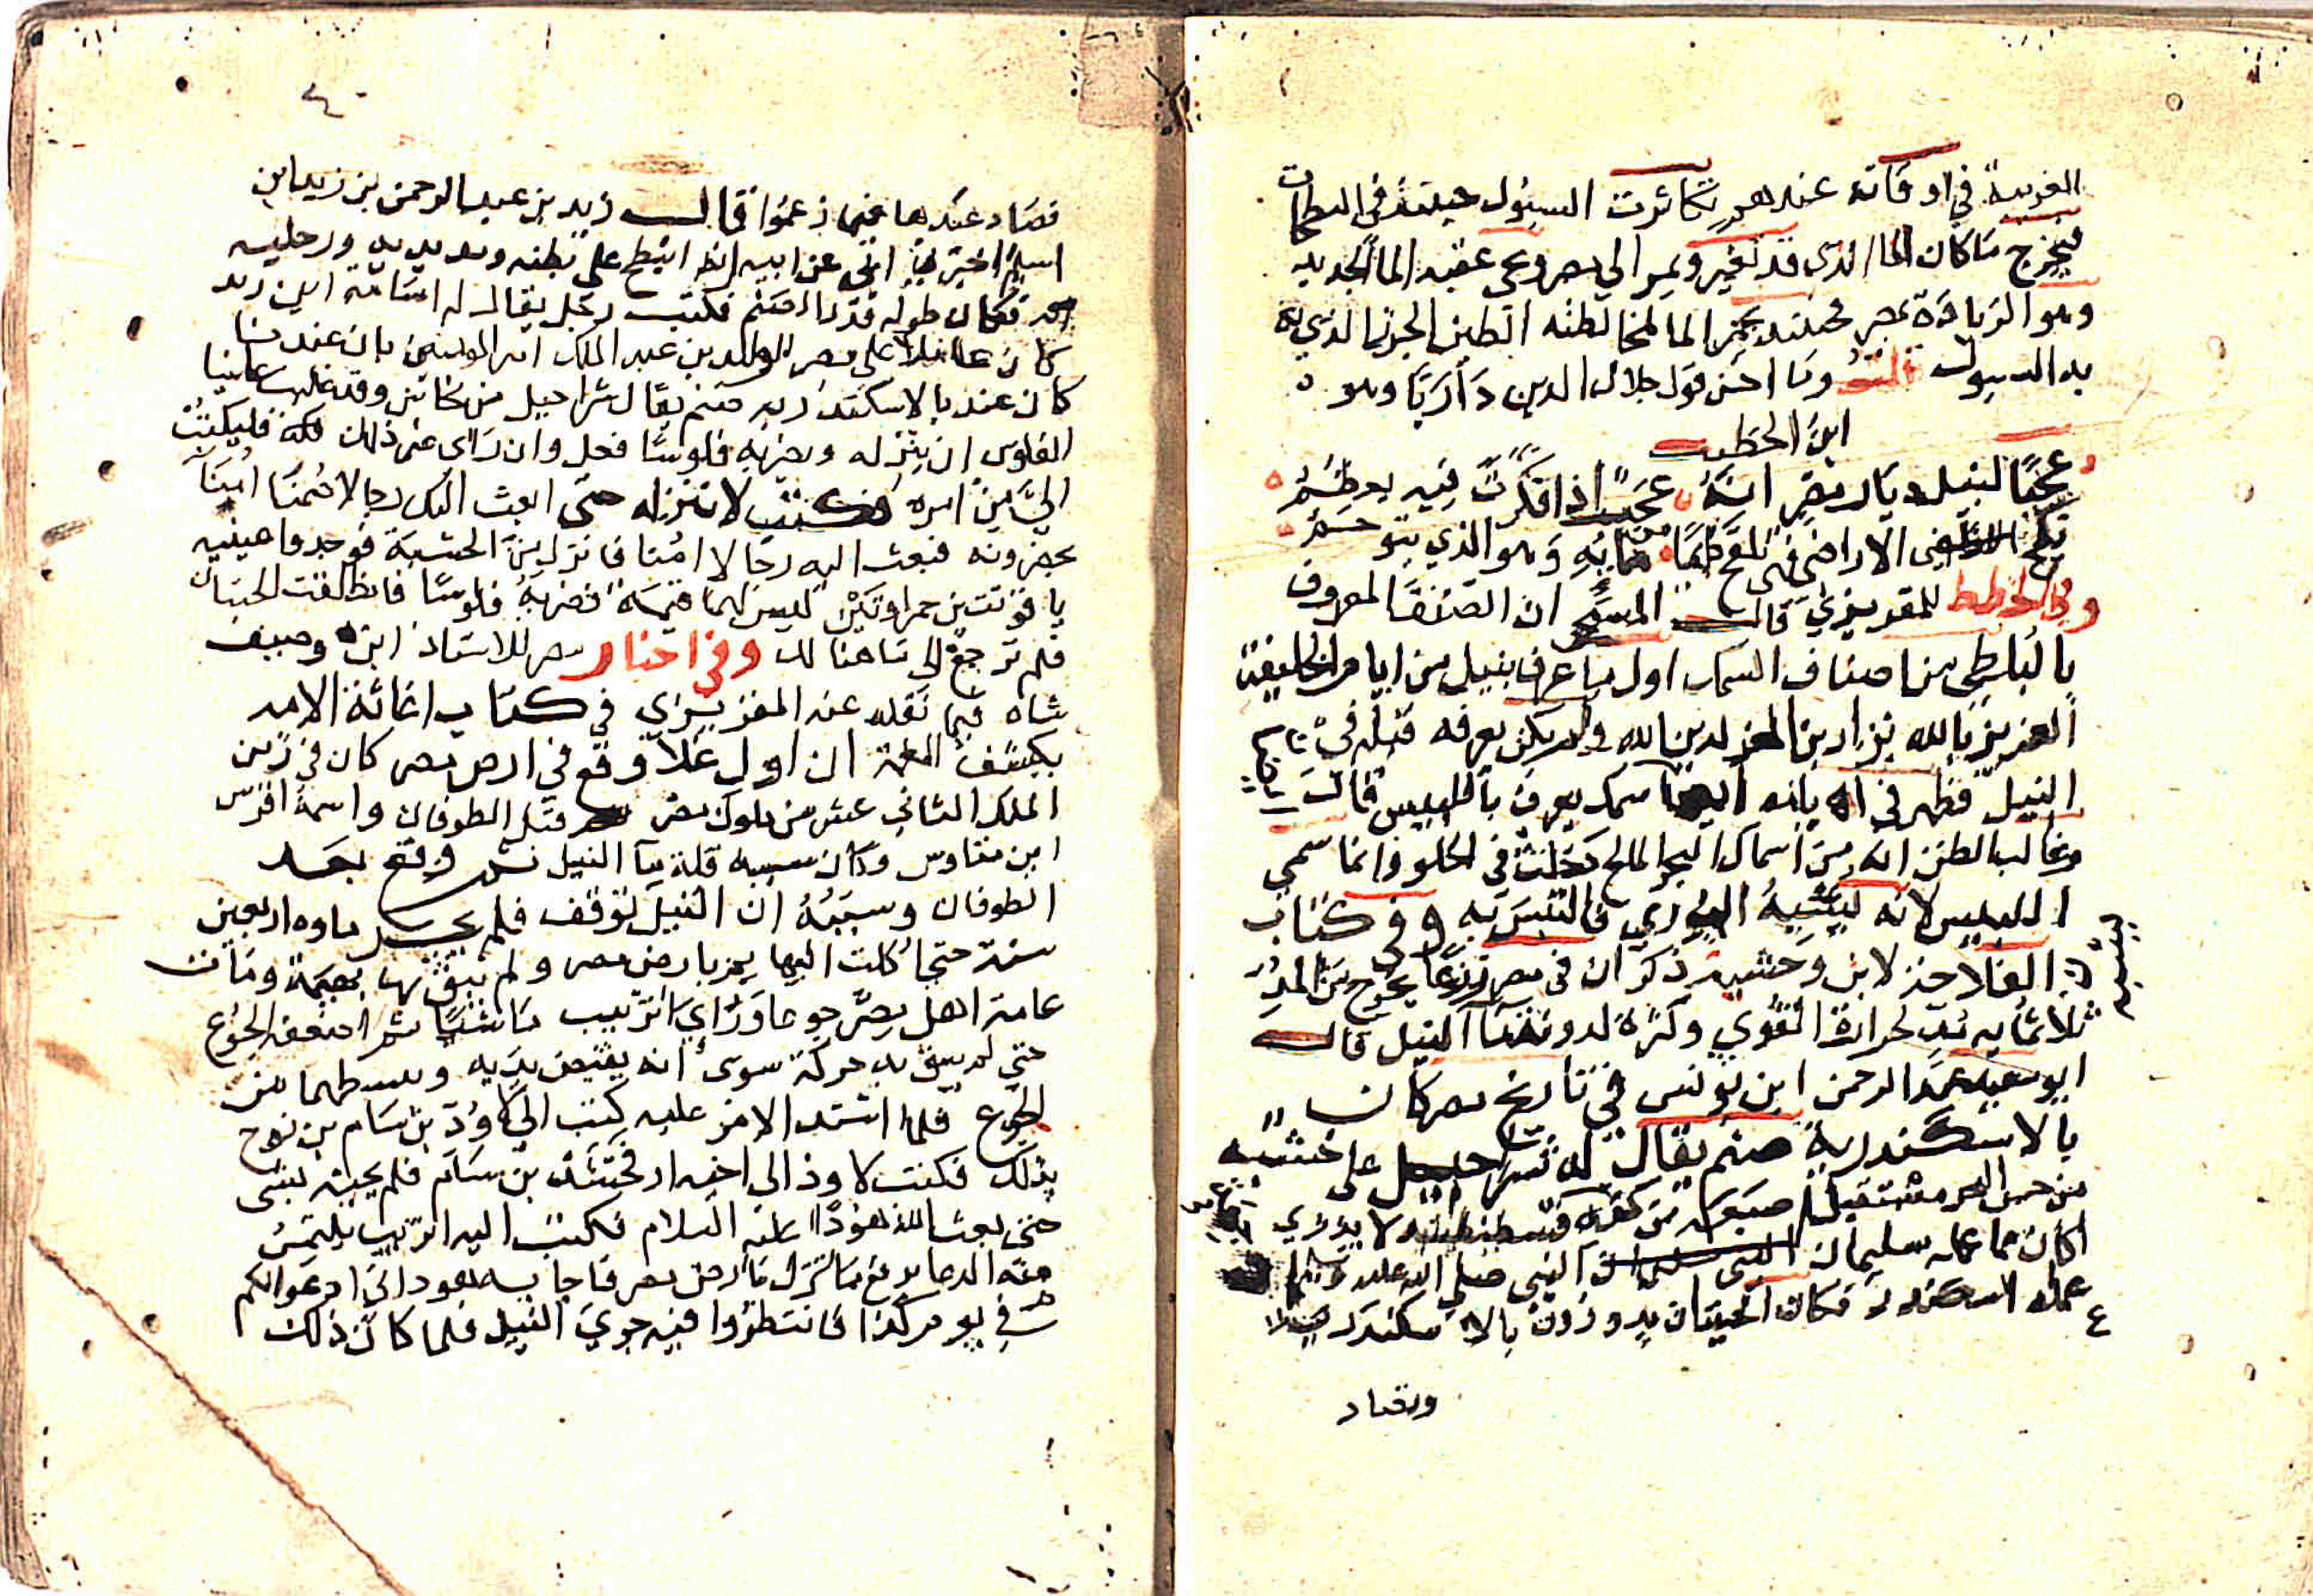 الغريبة في اوقاته عندهم تكاثرت السيول حينئذ في البطحات
فيخرج ما كان الما الذي قد تغير ويمر الي مصر وعي عقبه الما الجديد
وهو الزيادة بمصر فحينئذ يحمر الما لمخالطته الطين الجر الذي
به السيول قلت وما احسن قول جلال الدين داريا وهو
ابن الخطيب
عجبا لنيل ديار مصر انه عجب اذا فكرت فيه يعظم
تلقح الاراضي فهي تلقح من مائه وهو الذي يتوحم
وفي الخطط للمقريزي قال المسبحي ان الصنف المعروف
بالبلطي من اصناف السمك اول ما عرف بنيل من ايام الخليفة
العزيز بالله نزار بن المعز لدين الله ولم يكن يعرف قبله في
النيل فظهر في ايامه ايضا سمك يعرف باللبيس قال
وغالب الظن انه من اسماك البحر المالح دخلت في الحلو وانما سمي
اللبيس لانه يشبه البوري فالتبس به وفي كتاب
الفلاحة لابن وحشية ذكر ان في مصر تزرعا يخرج من المد
ثلاثمايه مد لحرارة القوي وكثرة لدونة ما النيل قال
ابو سعيد عبد الرحمن ابن يونس في تاريخ مصر كان
بالاسكندرية صنم يقال له شراحيل على خشبه
من حس البحر مستقبل باصبع من كفه قسطنطينيه لا يدري
اكان مما عمله سليمان النبي صلي الله عليه وسلم ام
عمله الاسكندر فكان الحيتان يدورون بالاسكندرية
وتصاد
٤٠
فتصاد عندها فيما زعموا قال زيد بن عبد الرحمن بن زيد ابن
اسلم اخبرني ابي عن ابيه انه انبطح على بطنه ومد يديه ورجليه
فكان طوله قدر الصنم فكتب رجل يقال له اسامة ابن زيد
كان عاملا على مصر للوليد بن عبد الملك امير المومنين بان عندنا
كان عندنا بالاسكندريه صنم يقال شراحيل من نحاس وقد غلت علينا
الفلوس ان ينزله ويضربه فلوسا فعل وان راى غير ذلك فليكتب
الي من امره فكتب لا تنزله حتى ابعث اليك رجالا ضمنا امينا
يحضرونه فبعث اليه رجالا امنا فانزل من الحشبة فوجدوا عينيه
ياقوتتين حمراوتين ليس لهما قيمة فضربه فلوسا فانطلقت الحيتان
فلم ترجع الى ما هنا لك وفي اخبار مصر للاستاذ ابن وصيف
شاه فيما نقله عنه المقريزي في كتاب اغاثة الامه
بكشف الغمة ان اول غلا وقع في ارض مصر كان في زمن
الملك الثاني عشر من ملوك مصر قبل الطوفان واسمه افرس
ابن مناوس وكان سببه قلة ما النيل ثم وقع بعد
الطوفان وسببه ان النيل توقف فلم يجر ماوه اربعين
سنة حتى اكلت البهايم بارض مصر ولم يبق بها بهيمة ومات
عامة اهل مصر جوعا وراي اتريب ماشيا ثم اضعفه الجوع
حتي لم يبق به حركة سوى انه يقبض يديه ويبسطهما من
الجوع فلما اشتد الامر عليه كتب الي لاوذ بن سام بن نوح
بذلك فكتب لاوذ الى اخيه ارفخشذ بن سام فلم يجبه بشي
حتى بعث الله هودا عليه السلام فكتب اليه اتريب يلتمس
منه الدعا برفع ما نزل بارض مصر فاجابه هود اني ادعو لكم
في يوم كذا فانتظروا فيه جري النيل فلما كان ذلك